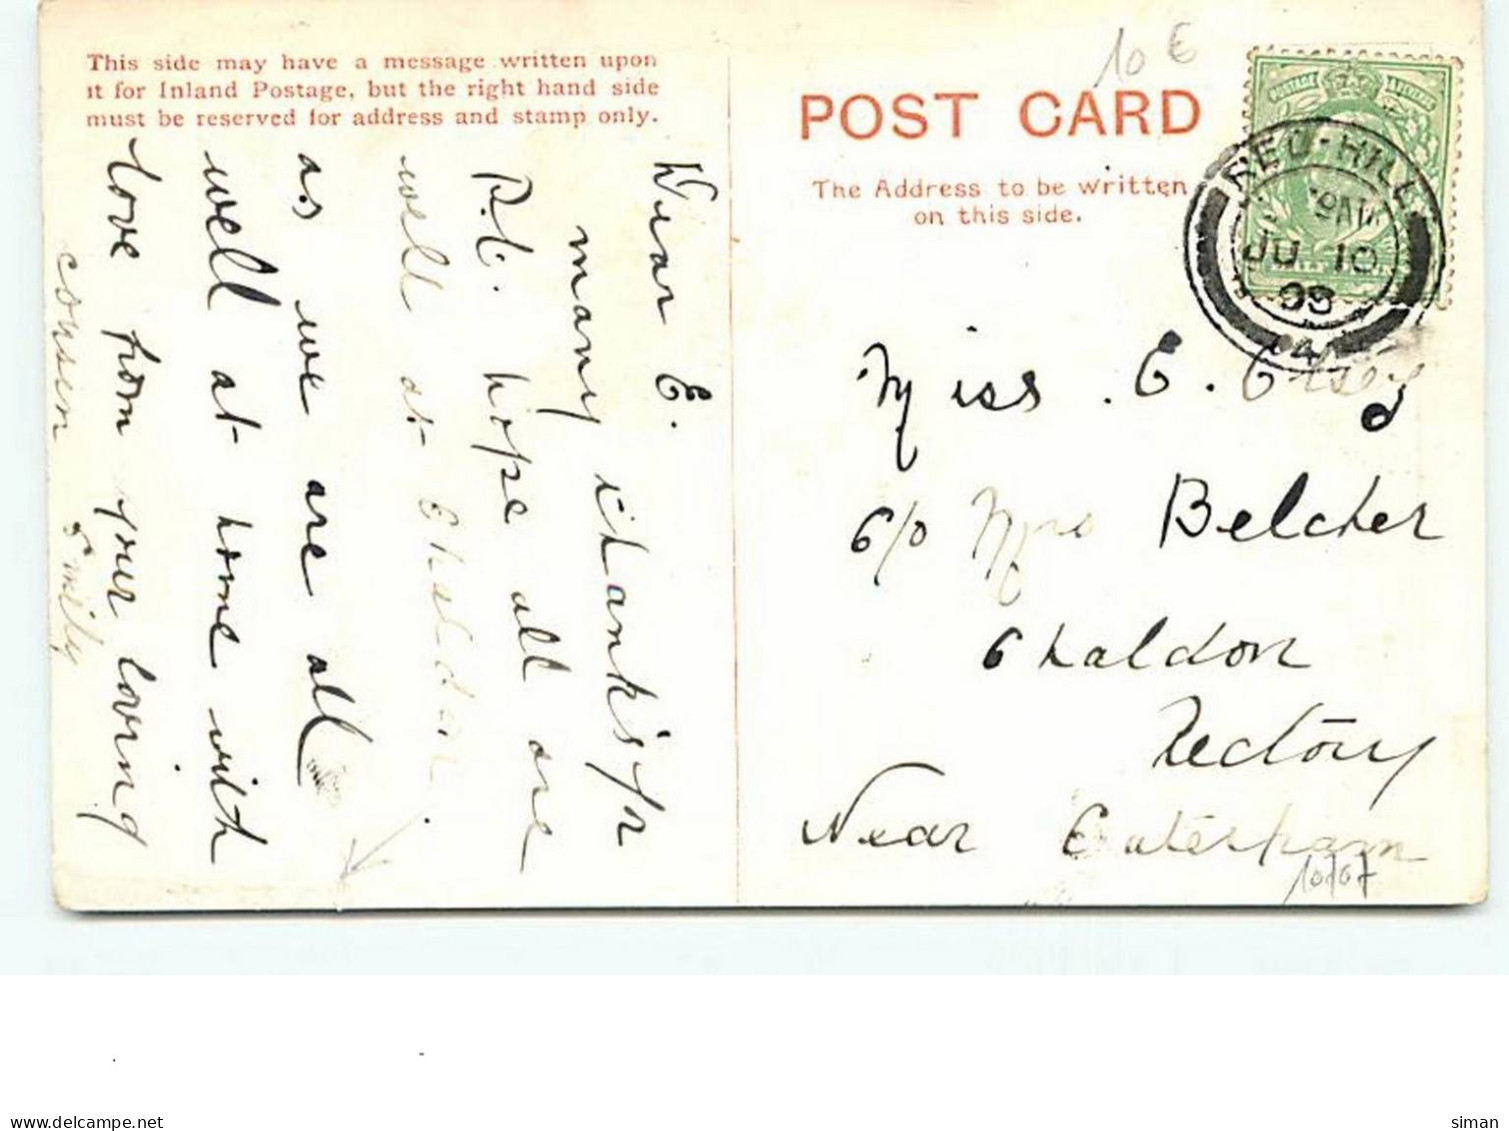 This side may have a message written upon
it for Inland Postage, but the right hand side
must be reserved for address and stamp only.
Dear E.
many thanks for
P.C. hope all are
well at Chaldon.
as we are all
well at home with
love from your loving
cousin Emily
10 €
POST CARD
The Address to be written
on this side.
POSTAGE
RED-HILL
JU 10
Miss. E.
C/o Mrs Belcher
Chaldon
Rectory
Near Caterham
10/07
delcampe.net
siman